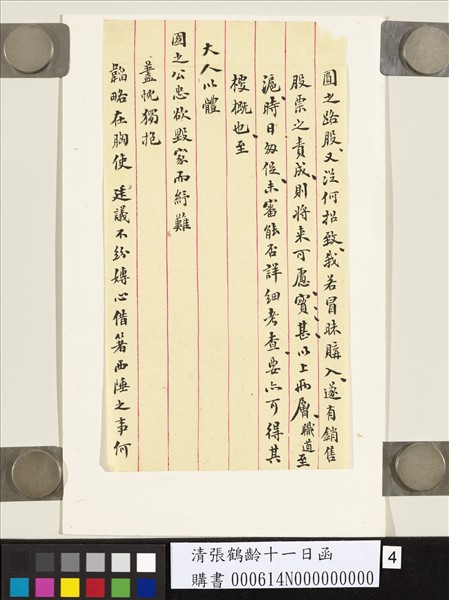 圓之路股又從何招致我若冒昧購入遂有銷售
股票之責成則將來可慮實甚以上兩層職道至
滬時日匆促未審能否詳細考查要亦可得其
梗概也至
大人以體
國之公忠欲毀家而紓難
蓋忱獨抱
韜略在胸使 廷議不紛專心借箸西陲之事何
清張鶴齡十一日函
購書 000614N000000000
4